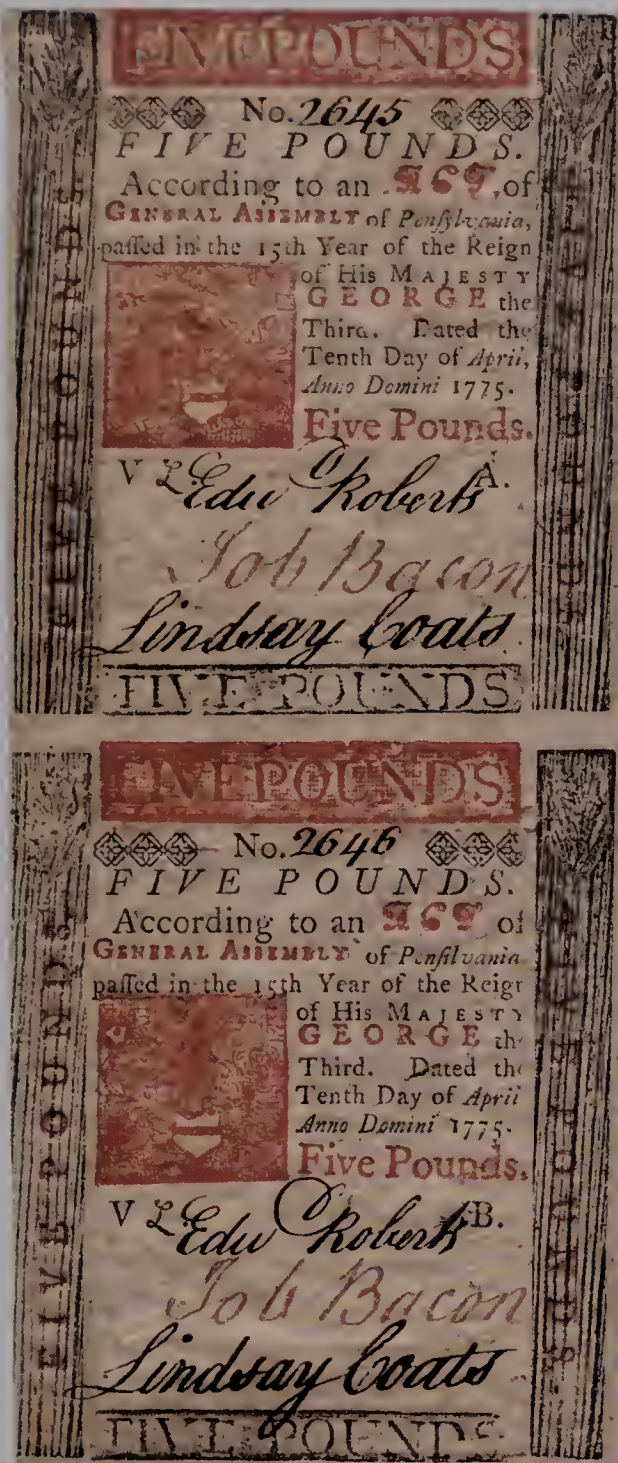 FIVE POUNDS
No. 2645
FIVE POUNDS.
According to an ACT, of
GENERAL ASSEMBLY of Penſylvania,
paſſed in the 15th Year of the Reign
of His MAJESTY
GEORGE the
Third. Dated the
Tenth Day of April,
Anno Domini 1775.
Five Pounds.
V L Edw Roberts A.
Job Bacon
Lindsay Coats
FIVE POUNDS
FIVE POUNDS
FIVE POUNDS
No. 2646
FIVE POUNDS.
According to an ACT of
GENERAL ASSEMBLY of Penſilvania
paſſed in the 15th Year of the Reign
of His MAJESTY
GEORGE the
Third. Dated the
Tenth Day of April
Anno Domini 1775.
Five Pounds.
V L Edw Roberts B.
Job Bacon
Lindsay Coats
FIVE POUNDS
FIVE POUNDS
FIVE POUNDS